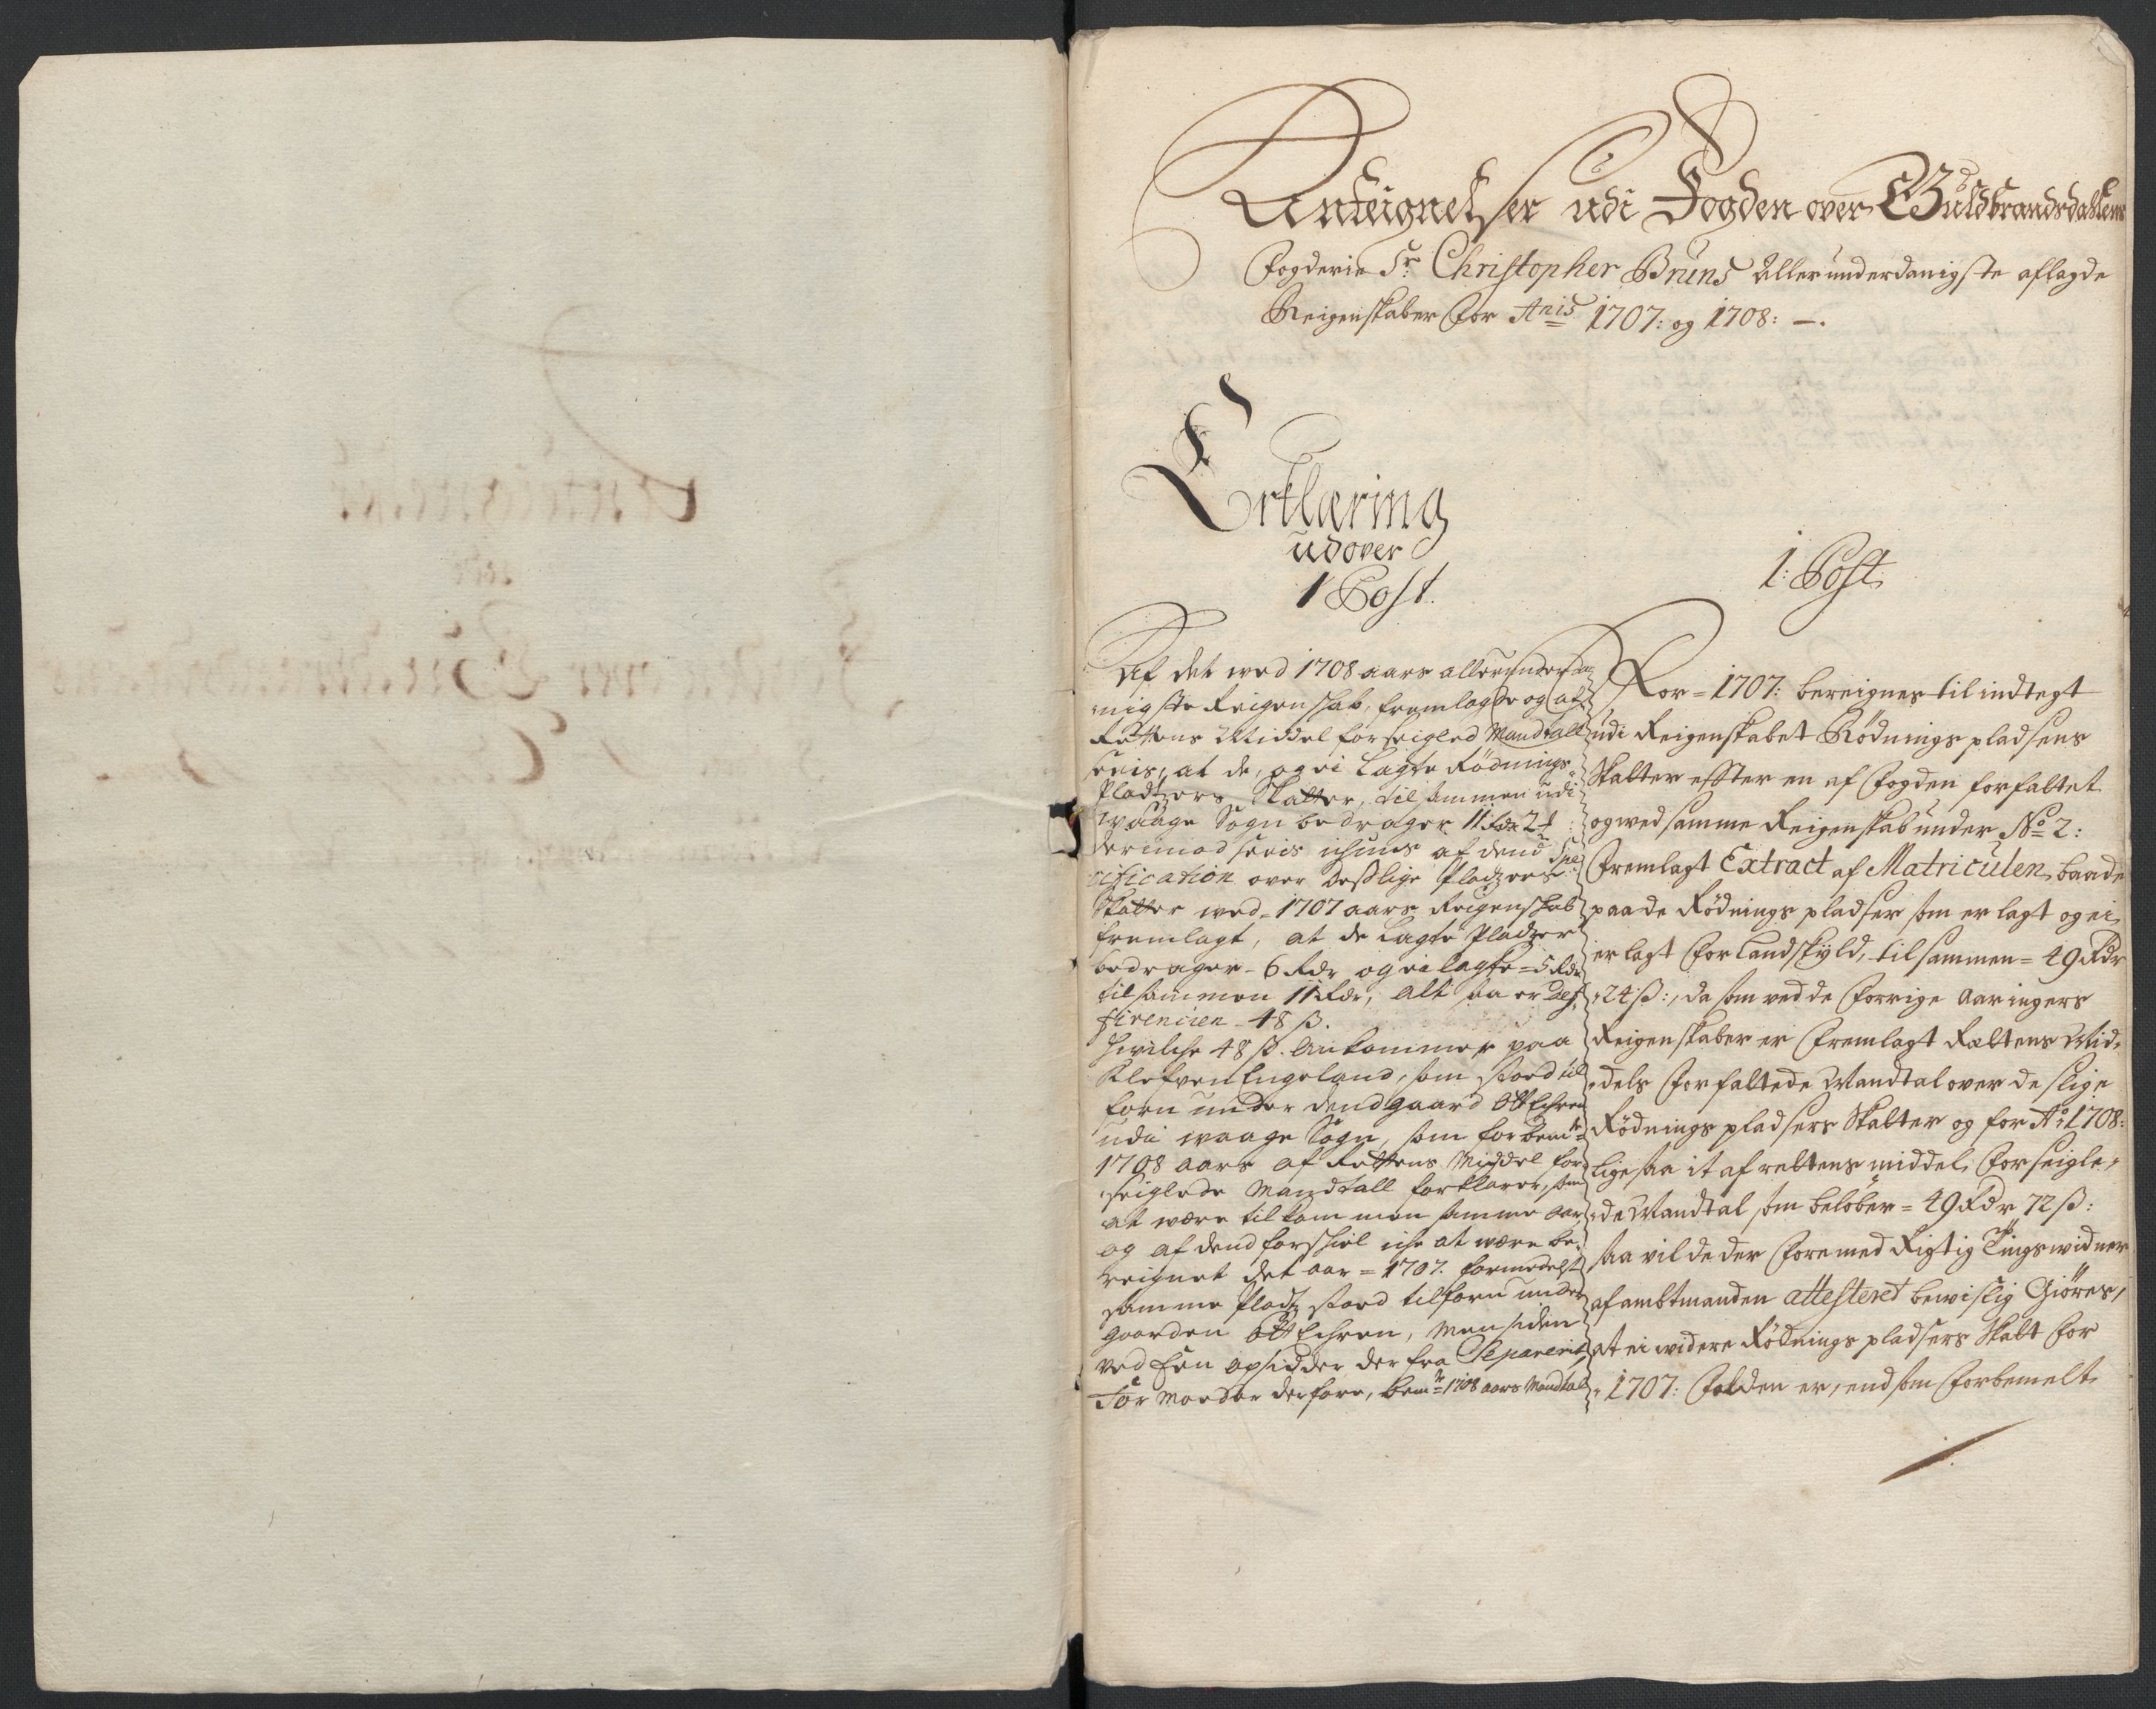 Anteignelser udi Fogden over Guldbrandsdahlens
Fogderie Sr. Christopher Bruns Allerunderdanigste aflagde
Reigenskaber for Anis 1707: og 1708: —.
Erklæring
udover
1 Post.
Af det wed 1708 aars allerunderda-
nigste Reigenskab, fremlagde og af
Rettens Middel forseigled Mandtall
sees, at de, og ei Lagte Rødnings
Pladzers Skatter, tilsammen udi
Waage Sogn bedrager 11 Rdr 2
derimod sees af dend Spe-
cification over deslige Pladzers
Skatter wed 1707 aars Reigenskab
fremlagt, at de Lagte Pladzer
bedrager 6 Rdr og ei lagte = 5 Rdr
tilsammen 11 Rdr, alt saa er Def-
firencien 48 ß.
Hvilche 48 ß. ankommer paa
Klefven Engeland, som stoed til
forn under dend gaard
udi waage Sogn, som forbemte
1708 aars af Rettens Middel for-
seiglede Mandtall forklarer,
at være tilkommen samme aar,
og af dend forskiel iche at være be-
reignet det aar = 1707. formedelst
samme Pladz stoed tilforn under
gaarden , men siden
ved Een opsidder der fra Separerit,
for derfore, bemte 1708 aars Mandtal
1: Post.
For = 1707: bereignes til indtegt
udi Reigenskabet Rødnings pladsens
Skatter effter en af Fogden forfattet
og wed samme Reigenskab under No 2:
Fremlagt Extract af Matriculen, baade
paa de Rødnings pladser som er lagt og ei
er lagt for Landskyld, tilsammen = 49 Rdr
24 ß:, da som ved de forrige aaringers
Reigenskaber er Fremlagt Rættens Mid-
dels Forfattede Mandtal over deslige
Rødnings pladsers Skatter og for Ao 1708:
lige saa it af rettens middel, Forseigle-
de Mandtal som beløber = 49 Rdr 72 ß:
saa vil de der Fore med Rigtig Tingswidner
af ambtmanden attesteret bewislig Giøres,
at ei widere Rødnings pladsers Skatt for
1707: Falden er, end som Forbemelt